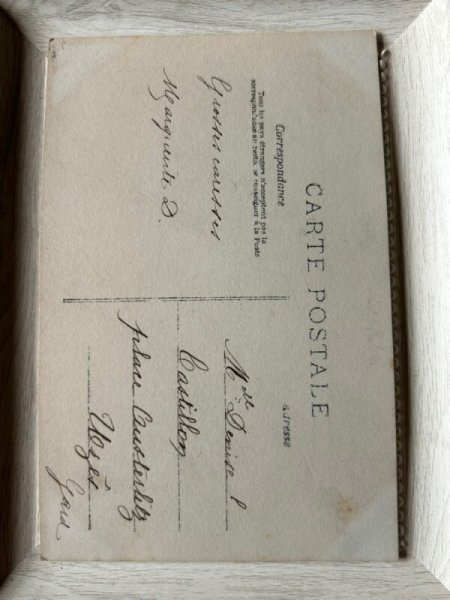 CARTE POSTALE
Correspondance
Tous les pays étrangers n'acceptent pas la
correspondance au verso, se renseigner à la Poste
Grosses caresses
Marguerite D.
Adresse
Mlle Denise
Castillon
place Austerlitz
Uzès
Gard